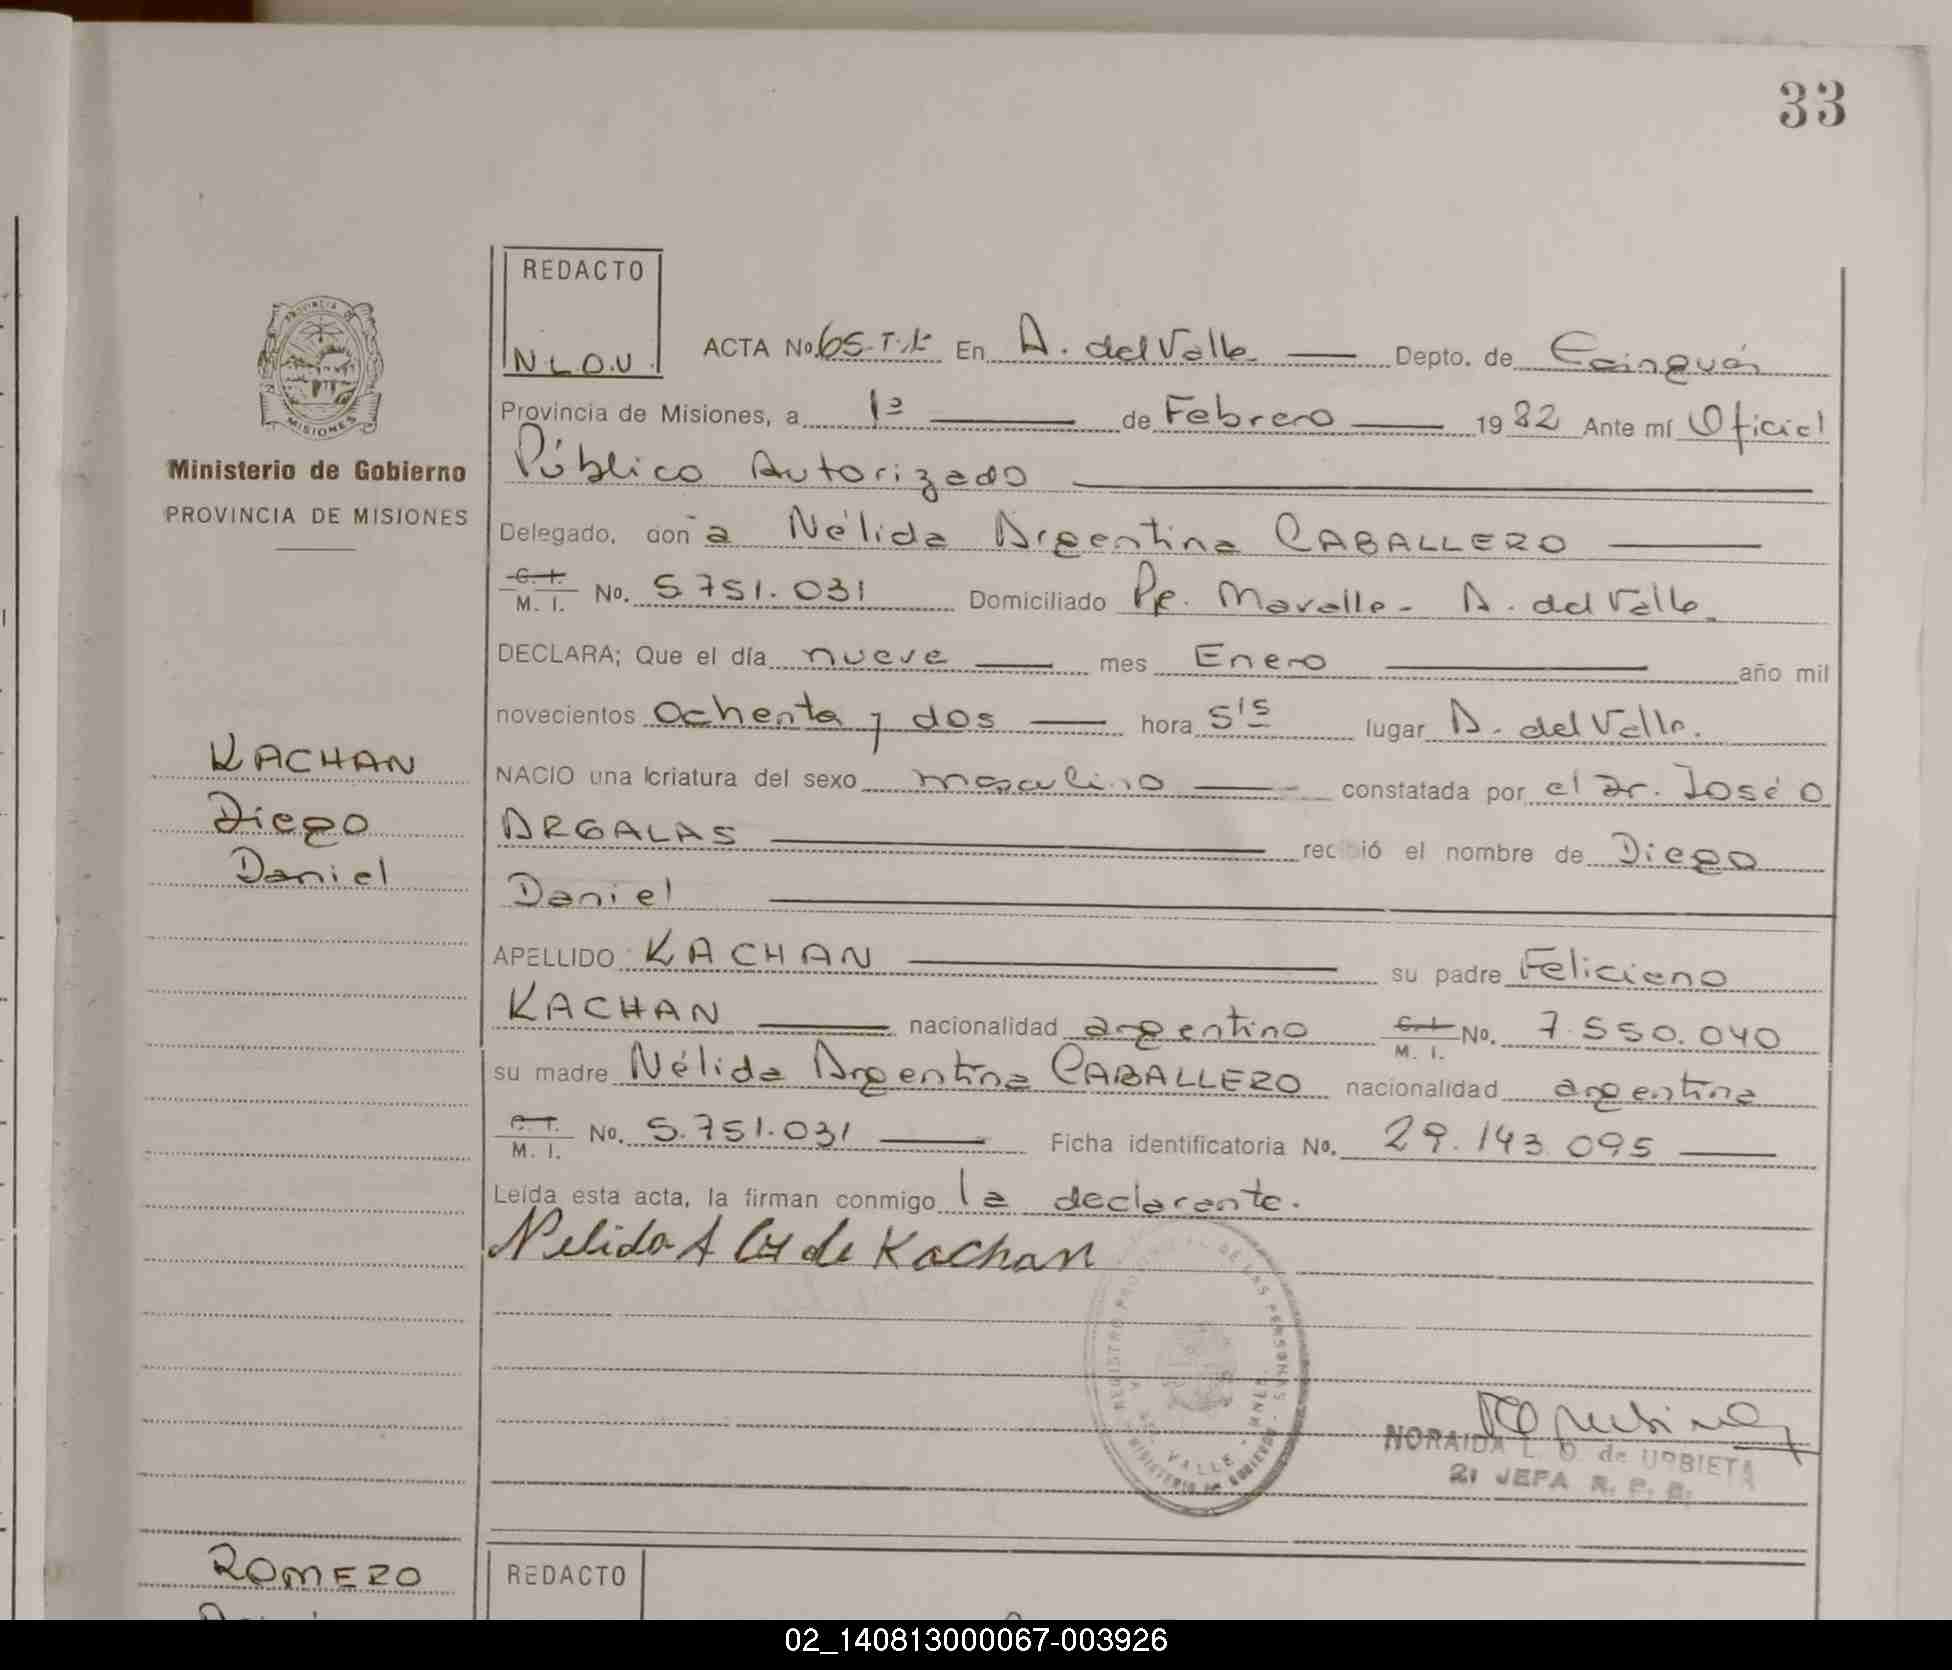 33
REDACTO
N.L.O.U.
ACTA No. 65-T.I- En A. del Valle Depto. de Cainguás
Provincia de Misiones, a 1º de Febrero 1982 Ante mí Oficial
Público Autorizado
Delegado, doña Nélida Argentina CABALLERO
C. I. M. I. No. 5.751.031 Domiciliado Pje. Mavalle - A. del Valle.
DECLARA; Que el día nueve mes Enero año mil
novecientos ochenta y dos hora 5'15 lugar A. del Valle.
NACIO una criatura del sexo masculino constatada por el Dr. José O
ARGALAS recibió el nombre de Diego
Daniel
APELLIDO KACHAN su padre Feliciano
KACHAN nacionalidad argentino C. I. M. I. No. 7.550.040
su madre Nélida Argentina CABALLERO nacionalidad argentina
C. I. M. I. No. 5.751.031 Ficha identificatoria No. 29.143.095
Leída esta acta, la firman conmigo la declarante.
Nelida A de Kachan
PROVINCIA
MISIONES
Ministerio de Gobierno
PROVINCIA DE MISIONES
KACHAN
Diego
Daniel
REGISTRO PROVINCIAL DE LAS PERSONAS
MINISTERIO DE GOBIERNO
VALLE - MNES.
NORAIDA L. O. de URBIETA
JEFA R. P. P.
ROMERO
REDACTO
02_140813000067-003926